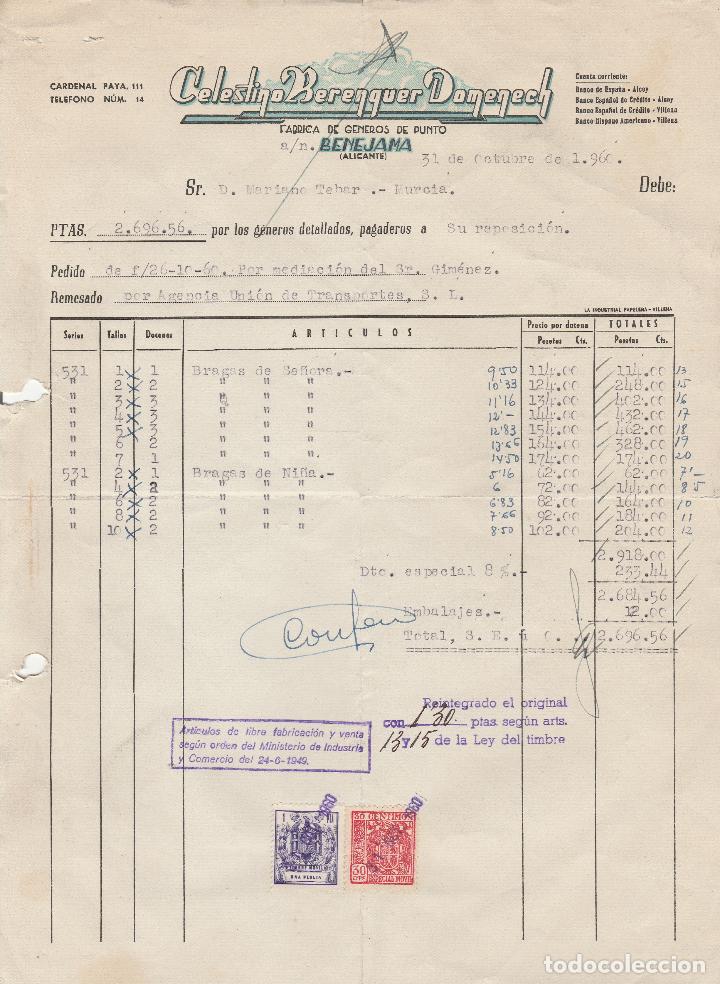 CARDENAL PAYA, 111
TELEFONO NÚM. 14
Celestino Berenguer Domenech
FABRICA DE GENEROS DE PUNTO
a/n. BENEJAMA
(ALICANTE)
Cuenta corriente:
Banco de España - Alcoy
Banco Español de Crédito - Alcoy
Banco Español de Crédito - Villena
Banco Hispano Americano - Villena
31 de Octubre de 1.960.
Sr. D. Mariano Tebar .- Murcia. Debe:
PTAS. 2.696.56. por los géneros detallados, pagaderos a Su reposición.
Pedido de f/26-10-60. Por mediación del Sr. Giménez.
Remesado por Agencia Unión de Transportes, S. L.
LA INDUSTRIAL PAPELERA - VILLENA
Series Tallas Docenas ARTICULOS Precio por docena TOTALES
Pesetas Cts. Pesetas Cts.
531 1 1 Bragas de Señora.- 9'50 114.00 114.00 13
" 2 2 " " " 10'33 124.00 248.00 15
" 3 3 " " " 11'16 134.00 402.00 16
" 4 3 " " " 12'- 144.00 432.00 17
" 5 3 " " " 12'83 154.00 462.00 18
" 6 2 " " " 13'66 164.00 328.00 19
" 7 1 " " " 14'50 174.00 174.00 20
531 2 1 Bragas de Niña.- 5'16 62.00 62.00 7'-
" 4 2 " " " 6 72.00 144.00 8'5
" 6 2 " " " 6'83 82.00 164.00 10
" 8 2 " " " 7'66 92.00 184.00 11
" 10 2 " " " 8'50 102.00 204.00 12
2.918.00
Dto. especial 8%.- 233.44
2.684.56
Embalajes.- 12.00
Total, S. E. ú O. 2.696.56
Reintegrado el original
con 1'30 ptas. según arts.
13 y 15 de la Ley del timbre
Artículos de libre fabricación y venta
según orden del Ministerio de Industria
y Comercio del 24-6-1949.
1960
1960
30 CENTIMOS
UNA PESETA
30 CTS
ESPECIAL MOVIL
todocoleccion.net